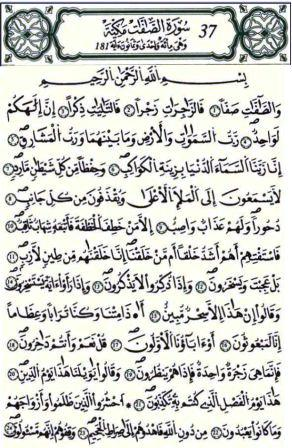 37 سورة الصفت مكية
وهى مائة واحدى وثمانون اية 181
بسم الله الرحمن الرحيم
والصافات صفا فالزاجرات زجرا فالتاليات ذكرا ان الهكم
لواحد رب السموات والارض وما بينهما ورب المشارق
انا زينا السماء الدنيا بزينة الكواكب وحفظا من كل شيطان مارد
لا يسمعون الى الملا الاعلى ويقذفون من كل جانب
دحورا ولهم عذاب واصب الا من خطف الخطفة فاتبعه شهاب ثاقب
فاستفتهم اهم اشد خلقا ام من خلقنا انا خلقناهم من طين لازب
بل عجبت ويسخرون واذا ذكروا لا يذكرون واذا راوا اية يستسخرون
وقالوا ان هذا الا سحر مبين ءاذا متنا وكنا ترابا وعظاما
ءانا لمبعوثون اواباؤنا الاولون قل نعم وانتم داخرون
فانما هى زجرة واحدة فاذا هم ينظرون وقالوا ياويلنا هذا يوم الدين
هذا يوم الفصل الذى كنتم به تكذبون احشروا الذين ظلموا وازواجهم
وما كانوا يعبدون من دون الله فاهدوهم الى صراط الجحيم وقفوهم انهم مسئولون